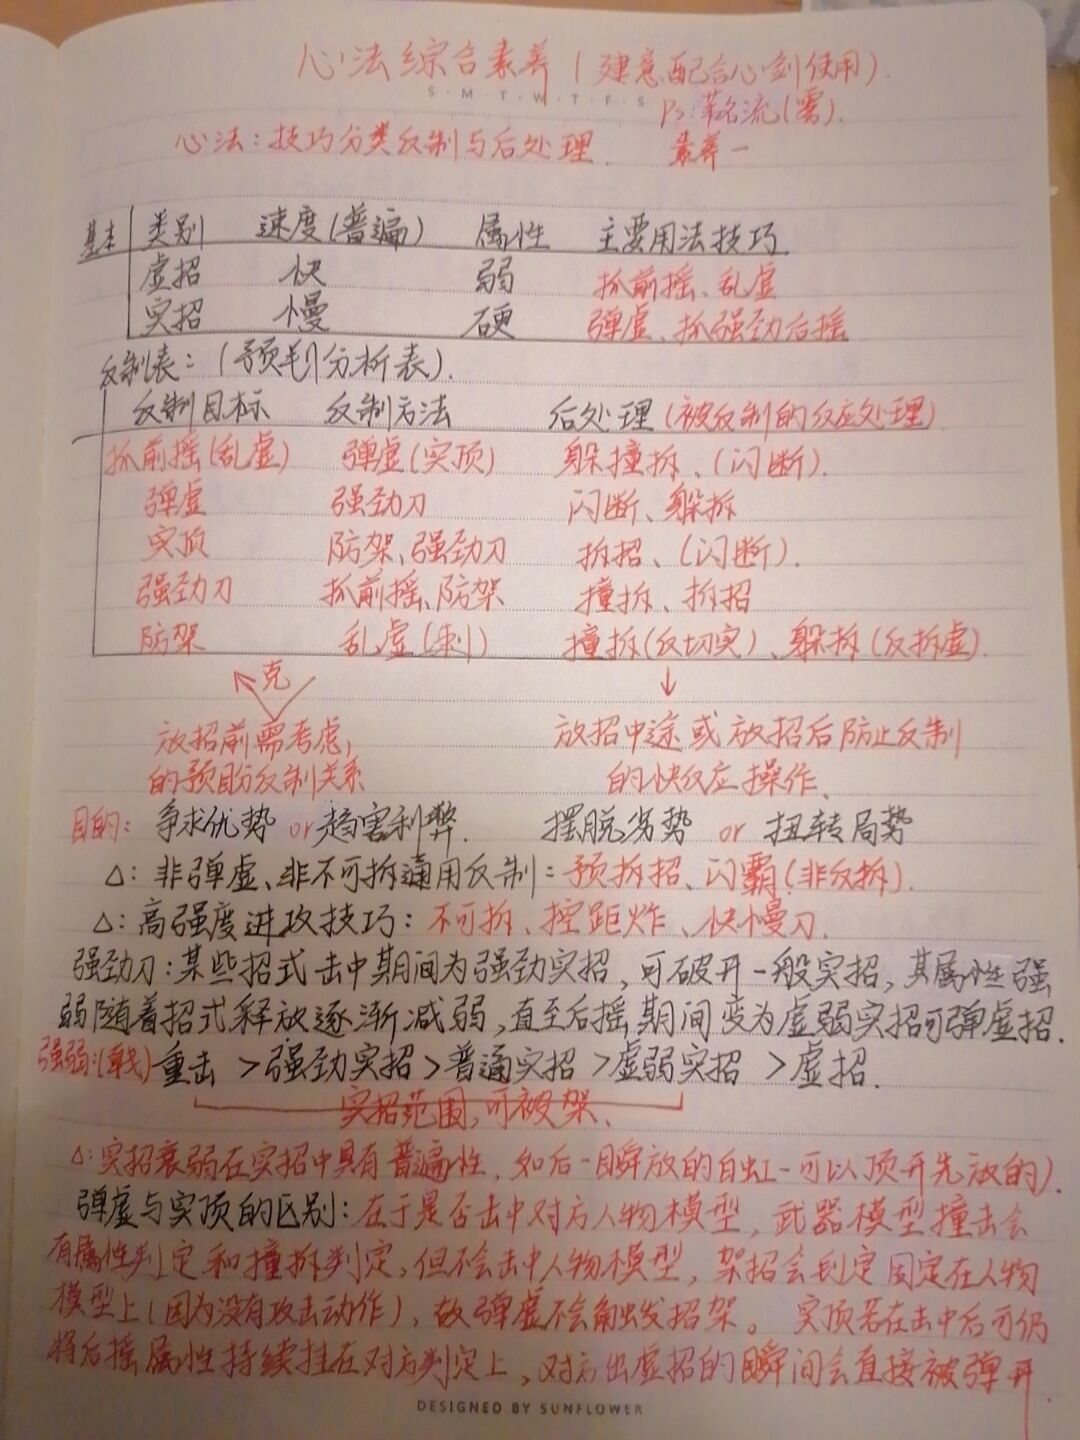 心法综合素养(建意配合心剑使用).
S·M·T·W·T·F·S
Ps:茗流(雾).
心法:技巧分类反制与后处理. 素养一
基本 类别 速度(普遍) 属性 主要用法技巧
虚招 快 弱 抓前摇、乱虚
实招 慢 硬 弹虚、抓强劲后摇
反制表:(预判分析表).
反制目标 反制方法 后处理(被反制的反应处理)
抓前摇(乱虚) 弹虚(实顶) 躲撞拆、(闪断).
弹虚 强劲刀 闪断、躲拆
实顶 防架、强劲刀 拆招、(闪断).
强劲刀 抓前摇、防架 撞拆、拆招
防架 乱虚(刺) 撞拆(反切实)、躲拆(反拆虚).
克
放招前需考虑, 放招中途或放招后防止反制
的预盼反制关系 的快反应操作.
目的: 争求优势 or 趋害利弊. 摆脱劣势 or 扭转局势
△:非弹虚、非不可拆通用反制:预拆招、闪霸(非反拆).
△:高强度进攻技巧:不可拆、控距炸、快慢刀.
强劲刀:某些招式击中期间为强劲实招,可破开一般实招,其属性强
弱随着招式释放逐渐减弱,直至后摇期间变为虚弱实招可弹虚招.
强弱:(戟)重击 >强劲实招>普通实招>虚弱实招 >虚招.
实招范围,可被架.
△:实招衰弱在实招中具有普遍性,如后一瞬放的白虹一可以顶开先放的).
弹虚与实顶的区别:在于是否击中对方人物模型,武器模型撞击会
有属性判定和撞拆判定,但不会击中人物模型,架招会判定固定在人物
模型上(因为没有攻击动作),故弹虚不会触发招架。实顶若在击中后可仍
将后摇属性持续挂在对方判定上,对方出虚招的瞬间会直接被弹开.
DESIGNED BY SUNFLOWER